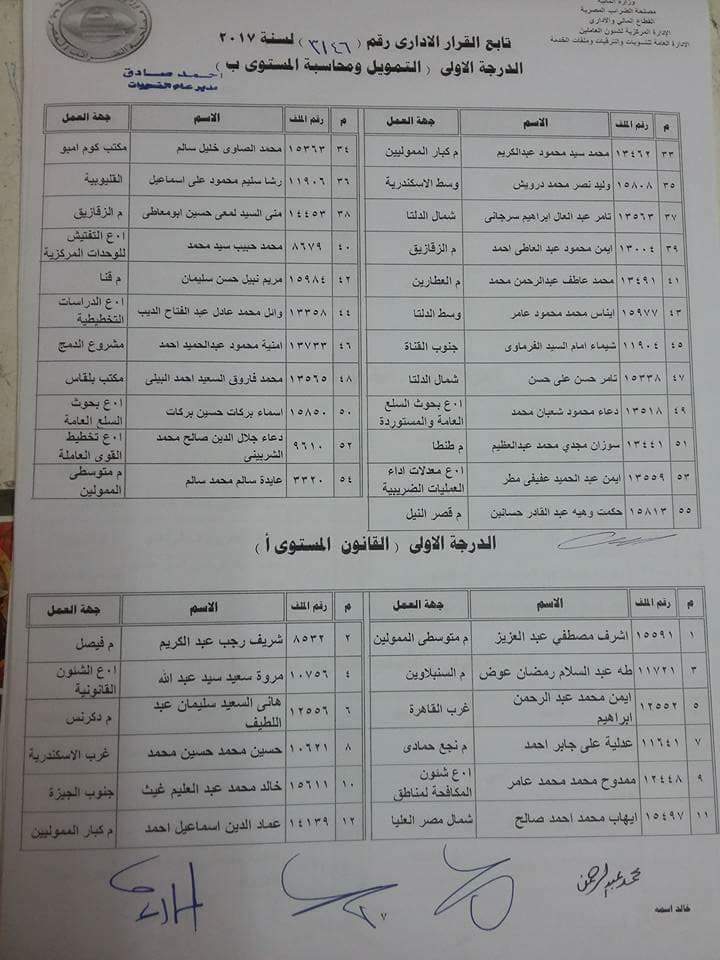 وزارة المالية
مصلحة الضرائب المصرية
القطاع المالي والاداري
الادارة المركزية لشئون العاملين
الادارة العامة للتسويات والترقيات وملفات الخدمة
تابع القرار الادارى رقم ( ٣١٤٦ ) لسنة ٢٠١٧
الدرجة الاولى ( التمويل ومحاسبة المستوى ب )
احمد صادق
مدير عام التسويات
م رقم الملف الاسم جهة العمل م رقم الملف الاسم جهة العمل
٣٣ ١٣٤٦٢ محمد سيد محمود عبدالكريم م كبار الممولين ٣٤ ١٥٣٦٣ محمد الصاوى خليل سالم مكتب كوم امبو
٣٥ ١٥٨٠٨ وليد نصر محمد درويش وسط الاسكندرية ٣٦ ١١٩٠٦ رشا سليم محمود على اسماعيل القليوبية
٣٧ ١٣٥٦٣ تامر عبد العال ابراهيم سرجانى شمال الدلتا ٣٨ ١٤٤٥٣ منى السيد لمعى حسين ابومعاطى م الزقازيق
٣٩ ١٣٠٠٤ ايمن محمود عبد العاطى احمد م الزقازيق ٤٠ ٨٦٧٩ محمد حبيب سيد محمد ا٠ع التفتيش للوحدات المركزية
٤١ ١٣٤٩١ محمد عاطف عبدالرحمن محمد م العطارين ٤٢ ١٥٩٨٤ مريم نبيل حسن سليمان م قنا
٤٣ ١٥٩٧٧ ايناس محمد محمود عامر وسط الدلتا ٤٤ ١٣٣٥٨ وائل محمد عادل عبد الفتاح الديب ا٠ع الدراسات التخطيطية
٤٥ ١١٩٠٤ شيماء امام السيد الفرماوى جنوب القناة ٤٦ ١٣٧٣٣ امنية محمود عبدالحميد احمد مشروع الدمج
٤٧ ١٥٣٣٨ تامر حسن على حسن شمال الدلتا ٤٨ ١٣٥٦٥ محمد فاروق السعيد احمد البيلى مكتب بلقاس
٤٩ ١٣٥١٨ دعاء محمود شعبان محمد ا٠ع بحوث السلع العامة والمستوردة ٥٠ ١٥٨٥٠ اسماء بركات حسين بركات ا٠ع بحوث السلع العامة
٥١ ١٣٤٤١ سوزان مجدي محمد عبدالعظيم م طنطا ٥٢ ٩٦١٠ دعاء جلال الدين صالح محمد الشربينى ا٠ع تخطيط القوى العاملة
٥٣ ١٣٥٥٩ ايمن عبد الحميد عفيفى مطر ا٠ع معدلات اداء العمليات الضريبية ٥٤ ٣٣٢٠ عايدة سالم محمد سالم م متوسطى الممولين
٥٥ ١٥٨١٣ حكمت وهبه عبد القادر حسانين م قصر النيل
الدرجة الاولى ( القانون المستوى أ )
م رقم الملف الاسم جهة العمل م رقم الملف الاسم جهة العمل
١ ١٥٥٩١ اشرف مصطفي عبد العزيز م متوسطى الممولين ٢ ٨٥٣٢ شريف رجب عبد الكريم م فيصل
٣ ١١٧٢١ طه عبد السلام رمضان عوض م السنبلاوين ٤ ١٠٧٥٦ مروة سعيد سيد عبد الله ا٠ع الشئون القانونية
٥ ١٢٥٥٢ ايمن محمد عبد الرحمن ابراهيم غرب القاهرة ٦ ١٢٥٥٦ هانى السعيد سليمان عبد اللطيف م دكرنس
٧ ١١٦٤١ عدلية على جابر احمد م نجع حمادى ٨ ١٠٦٢١ حسين محمد حسين محمد غرب الاسكندرية
٩ ١٢٤٤٨ ممدوح محمد محمد عامر ا٠ع شئون المكافحة لمناطق ١٠ ١٥٦١١ خالد محمد عبد العليم غيث جنوب الجيزة
١١ ١٥٤٩٧ ايهاب محمد احمد صالح شمال مصر العليا ١٢ ١٤١٣٩ عماد الدين اسماعيل احمد م كبار الممولين
محمد عبدالرحمن
٧
خالد اسمه